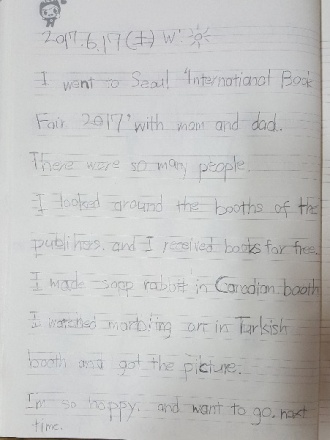 2017.6.17 (土) W:
I went to Seoul 'International Book
Fair 2017' with mom and dad.
There were so many people.
I looked around the booths of the
publihers. and I received books for free.
I made soap rabbit in Canadian booth
I watched marbling art in Turkish
booth and got the picture.
I'm so happy. and want to go. next
time.